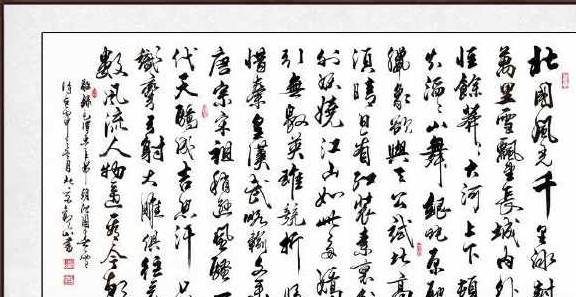 北國風光千里冰封
萬里雪飄望長城內外
惟餘莽〻大河上下頓
失滔〻山舞銀蛇原馳
蠟象欲與天公試比高
須晴日看紅裝素裹
分妖嬈江山如此多嬌
引無數英雄競折腰
惜秦皇漢武略輸文采
唐宗宋祖稍遜風騷
代天驕成吉思汗只
識彎弓射大雕俱往矣
數風流人物還看今朝
敬錄毛澤東主席詞沁園春雪